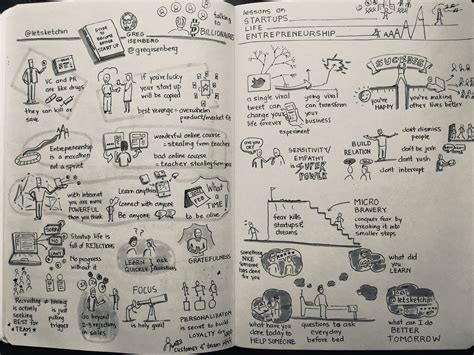 @letsketchin
GUIDE TO
START UP
GREG
ISENBERG
@gregisenberg
talking
to
BILLIONAIRES
VC and PR
are like drugs
they can kill or
save
if you're lucky
your start up
will be copied
best revenge = overwhelm
product/market fit
Entrepreneurship
is a marathon
not a sprint
wonderful online course
= stealing from teacher
bad online course
= teacher stealing from you
with internet
you are more
POWERFUL
than you think
Learn anything
Connect with anyone
Be anyone
WHAT
A
TIME
to be alive!
Startup life is
full of REJECTIONS
No progress
without it
LEARN ask
QUICKLY Questions
GRATEFULNESS
Recruiting =
actively
seeking
BEST for
TEAM
hiring
is just
pulling
trigger
Go beyond
2-3 rejections
in sales
FOCUS
is holy grail
PERSONALIZATION
is secret to build
LOYALTY
customer & team
lessons on
STARTUPS
LIFE
ENTREPRENEURSHIP
a single viral
tweet can
change your
life forever
going viral
can transform
your
business
experiment
SUCCESS
you're
HAPPY
you're making
others lives better
SENSITIVITY/
EMPATHY
is SUPER
POWER
BUILD
RELATION
don't dismiss
people
don't be jerk
don't rush
don't interrupt
fear kills
startups &
dreams
MICRO
BRAVERY
conquer fear by
breaking it into
smaller steps
something
NICE
someone
has done
for you
what did
you
LEARN
what have you
done today to
HELP SOMEONE
questions to ask
everyday
before bed
@letsketchin
FOR A
BETTER
TOMORROW